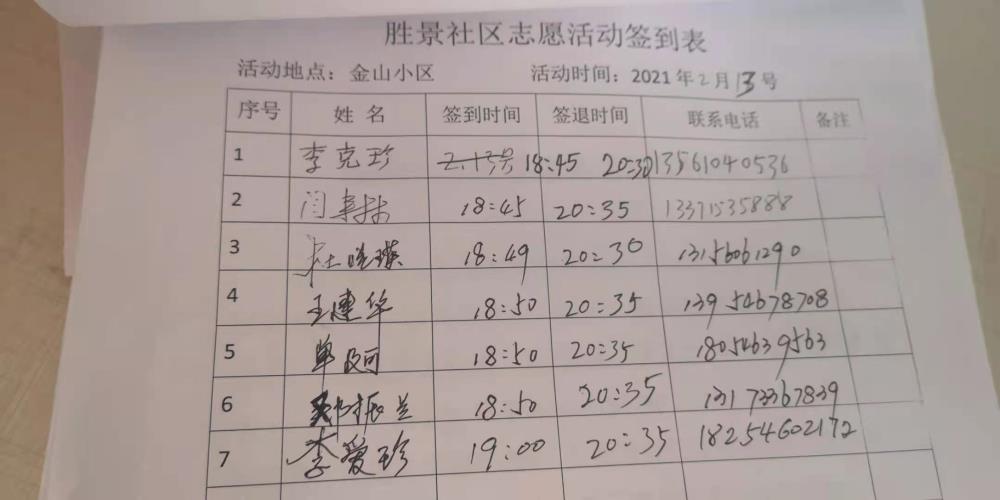 胜景社区志愿活动签到表
活动地点：金山小区 活动时间：2021年2月13号
序号 姓名 签到时间 签退时间 联系电话 备注
1 李克珍 18:45 20:30 13561040536
2 闫 18:45 20:35 13371535888
3 杜 18:49 20:30 13156061290
4 王建华 18:50 20:35 13954678708
5 单 18:50 20:35 18054639563
6 振兰 18:50 20:35 13173367839
7 李爱珍 19:00 20:35 18254602172